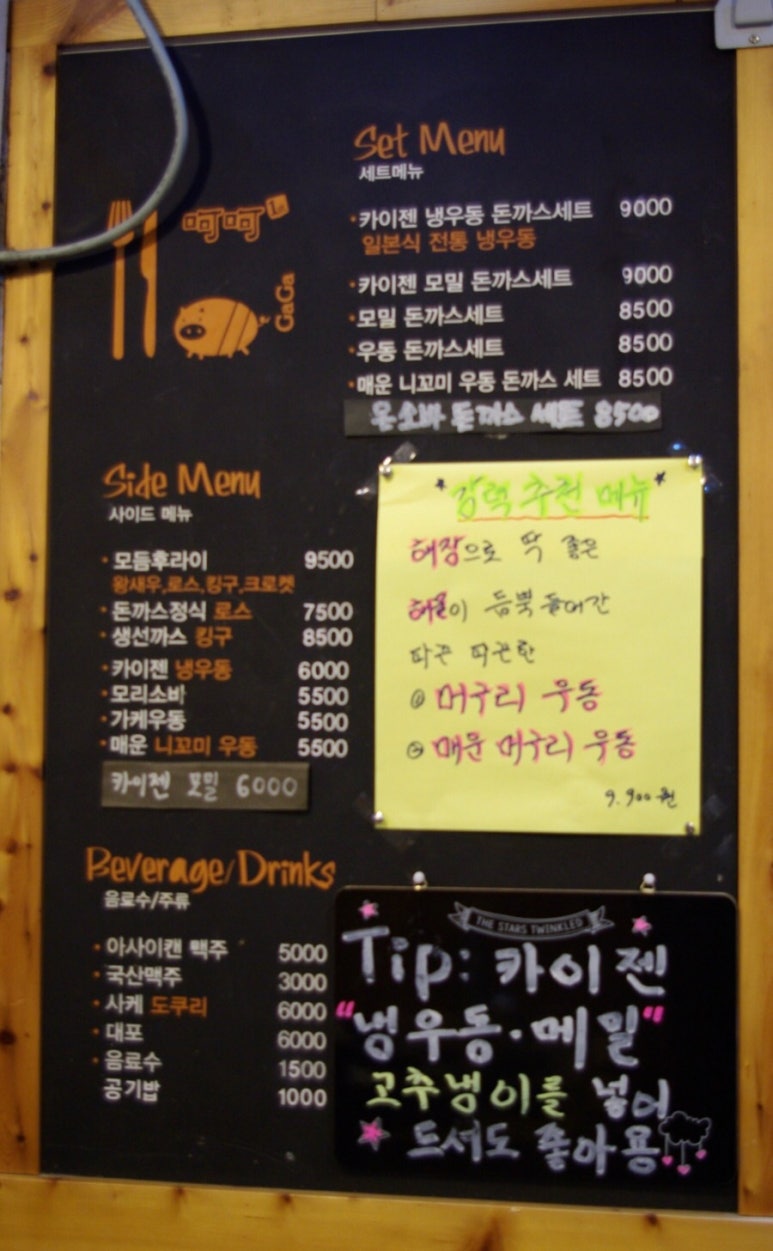 Set Menu
세트메뉴
·카이젠 냉우동 돈까스세트 9000
일본식 전통 냉우동
·카이젠 모밀 돈까스세트 9000
·모밀 돈까스세트 8500
·우동 돈까스세트 8500
·매운 니꼬미 우동 돈까스 세트 8500
돈까스 세트 8500
呵呵
GaGa
Side Menu
사이드 메뉴
·모듬후라이 9500
왕새우,로스,킹구,크로켓
·돈까스정식 로스 7500
·생선까스 킹구 8500
·카이젠 냉우동 6000
·모리소바 5500
·가케우동 5500
·매운 니꼬미 우동 5500
카이젠 모밀 6000
강력 추천 메뉴
해장으로 딱 좋은
해물이 듬뿍 들어간
따끈 따끈한
① 머구리 우동
② 매운 머구리 우동
9.900원
Beverage/Drinks
음료수/주류
·아사이캔 맥주 5000
·국산맥주 3000
·사케 도쿠리 6000
·대포 6000
·음료수 1500
공기밥 1000
THE STARS TWINKLED
Tip: 카이젠
"냉우동·메밀"
고추냉이를 넣어
드셔도 좋아용